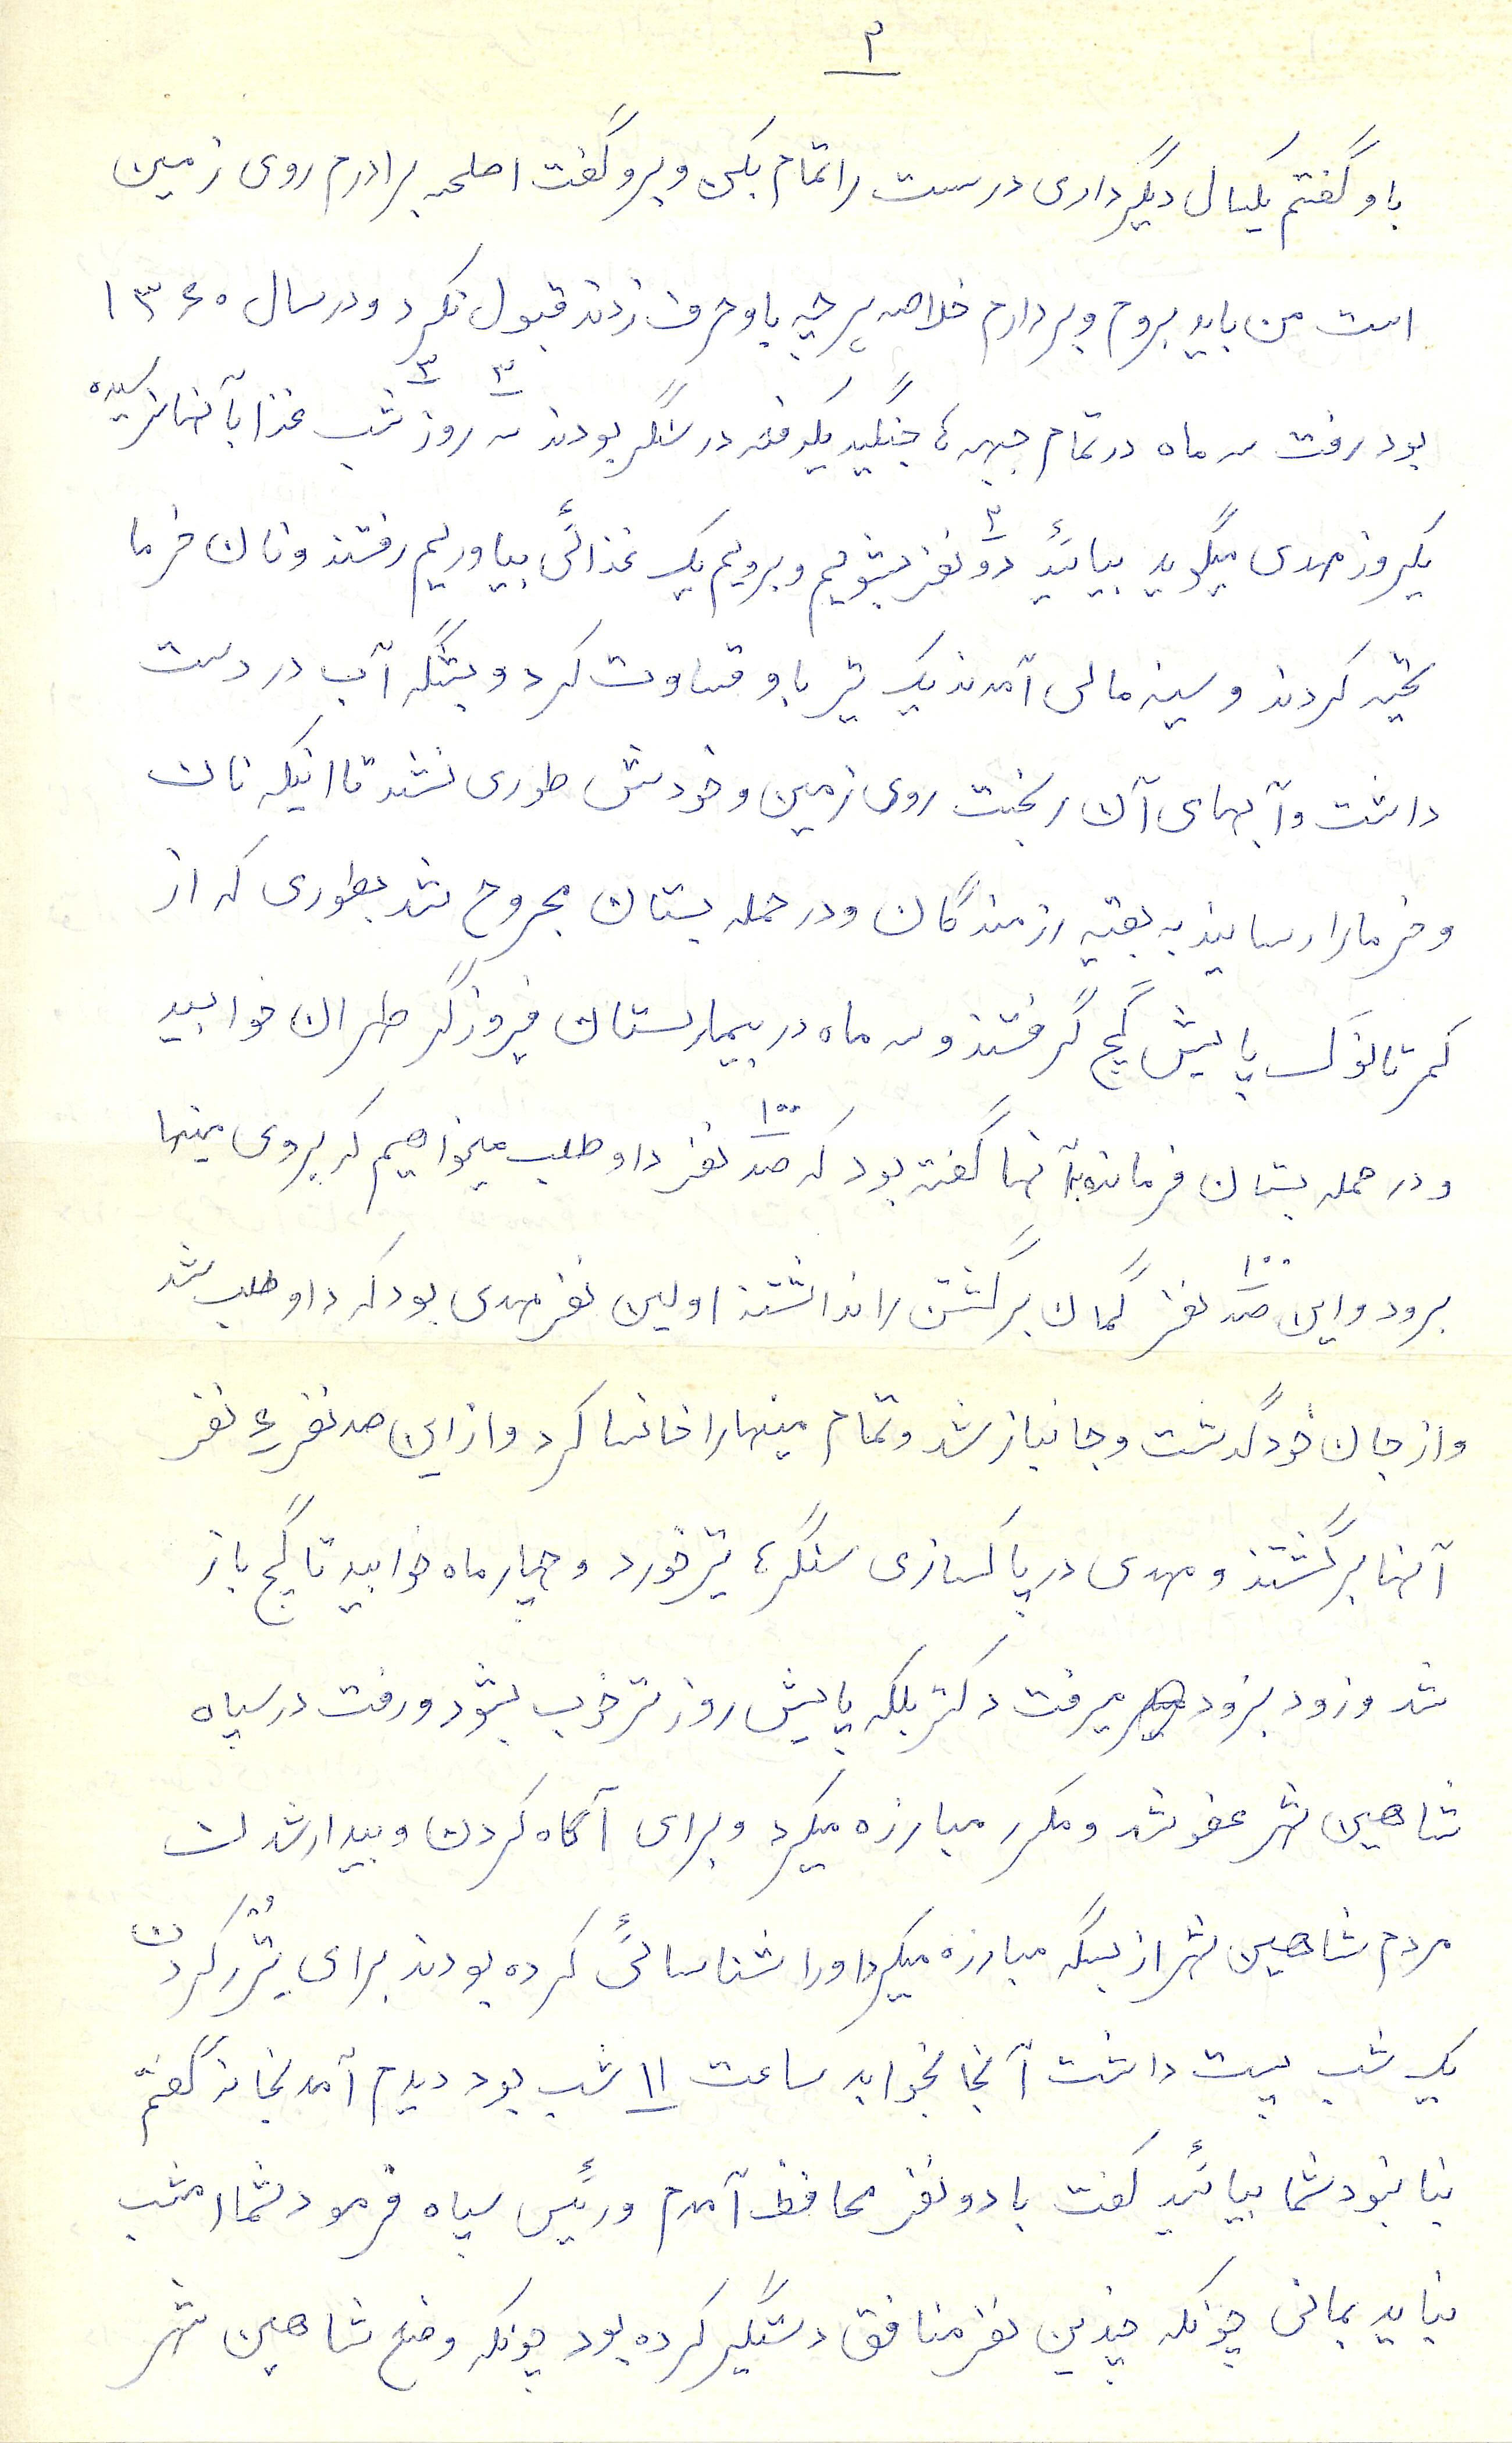 ۳
باو گفتم یکسال دیگر داری درست را تمام بکن و برو گفت اصلحه برادرم روی زمین
است من باید بروم و بردارم خلاصه هرچه باو حرف زدند قبول نکرد و در سال ۱۳۶۰
بود رفت سه ماه در تمام جبهه ها جنگید یکدفعه در سنگر بودند سه ۳ روز ۳ شب غذا بآنها نرسیده
یکروز مهدی میگوید بیائید دو ۲ نفر بشویم و برویم یک غذائی بیاوریم رفتند و نان خرما
تهیه کردند و سینه مالی آمدند یک تیر باو قساوت کرد و بشکه آب در دست
داشت و آبهای آن ریخت روی زمین و خودش طوری نشد تا اینکه نان
و خرما را رسانید به بقیه رزمندگان و در حمله بستان مجروح شد بطوری که از
کمر تا نوک پایش گچ گرفتند و سه ماه در بیمارستان فیروزگر طهران خوابید
و در حمله بستان فرمانده بآنها گفته بود که صد ۱۰۰ نفر داوطلب میخواهیم که بروی مینها
برود و این صد ۱۰۰ نفر گمان برگشتن را نداشتند اولین نفر مهدی بود که داوطلب شد
و از جان خود گذشت و جانباز شد و تمام مینها را خانسا کرد و از این صد نفر ۴ نفر
آنها برگشتند و مهدی در پاکسازی سنگر ها تیر خورد و چهار ماه خوابید تا گچ باز
شد و زود بزود میرفت دکتر بلکه پایش زودتر خوب بشود و رفت در سپاه
شاهین شهر عضو شد و مکرر مبارزه میکرد و برای آگاه کردن و بیدار شدن
مردم شاهین شهر از بسکه مبارزه میکرد او را شناسائی کرده بودند برای تُرُر کردن
یک شب پست داشت آنجا بخوابد ساعت ۱۱ شب بود دیدم آمد بخانه گفتم
بنا نبود شما بیائید گفت با دو نفر محافظ آمدم و رئیس سپاه فرمود شما امشب
نباید بمانی چونکه چندین نفر منافق دستگیر کرده بود چونکه وضع شاهین شهر